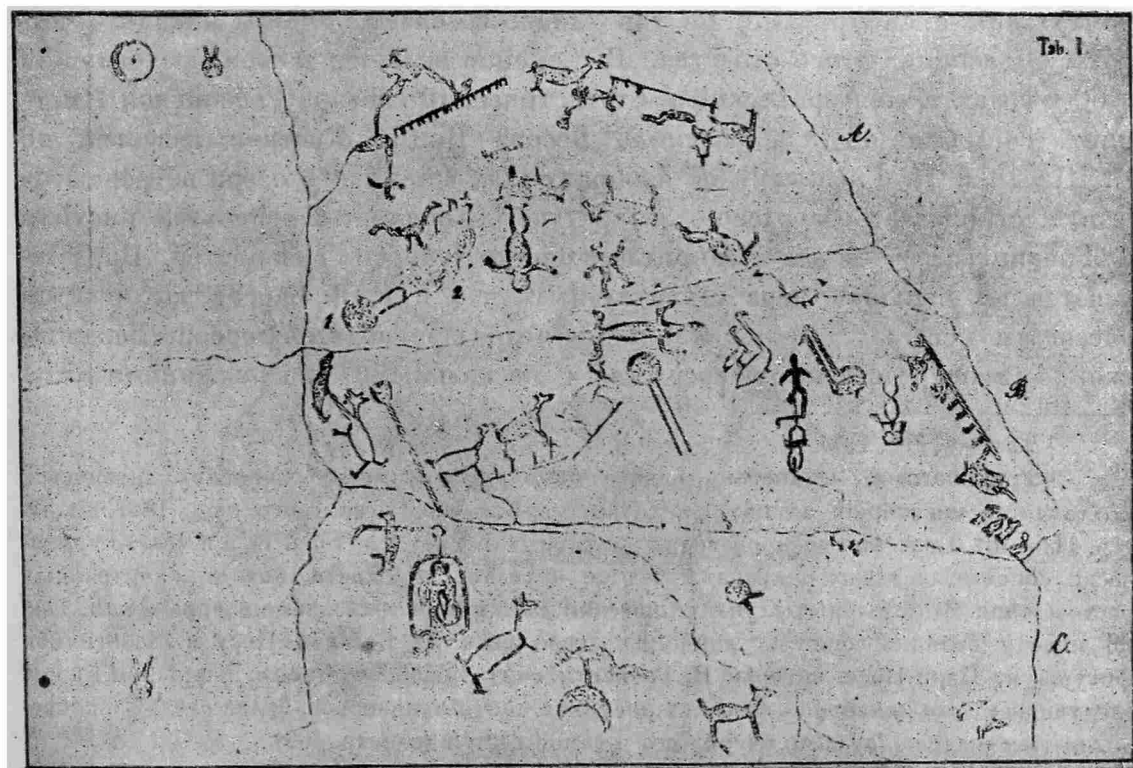 Tab. 1.
A.
1.
2.
B.
C.